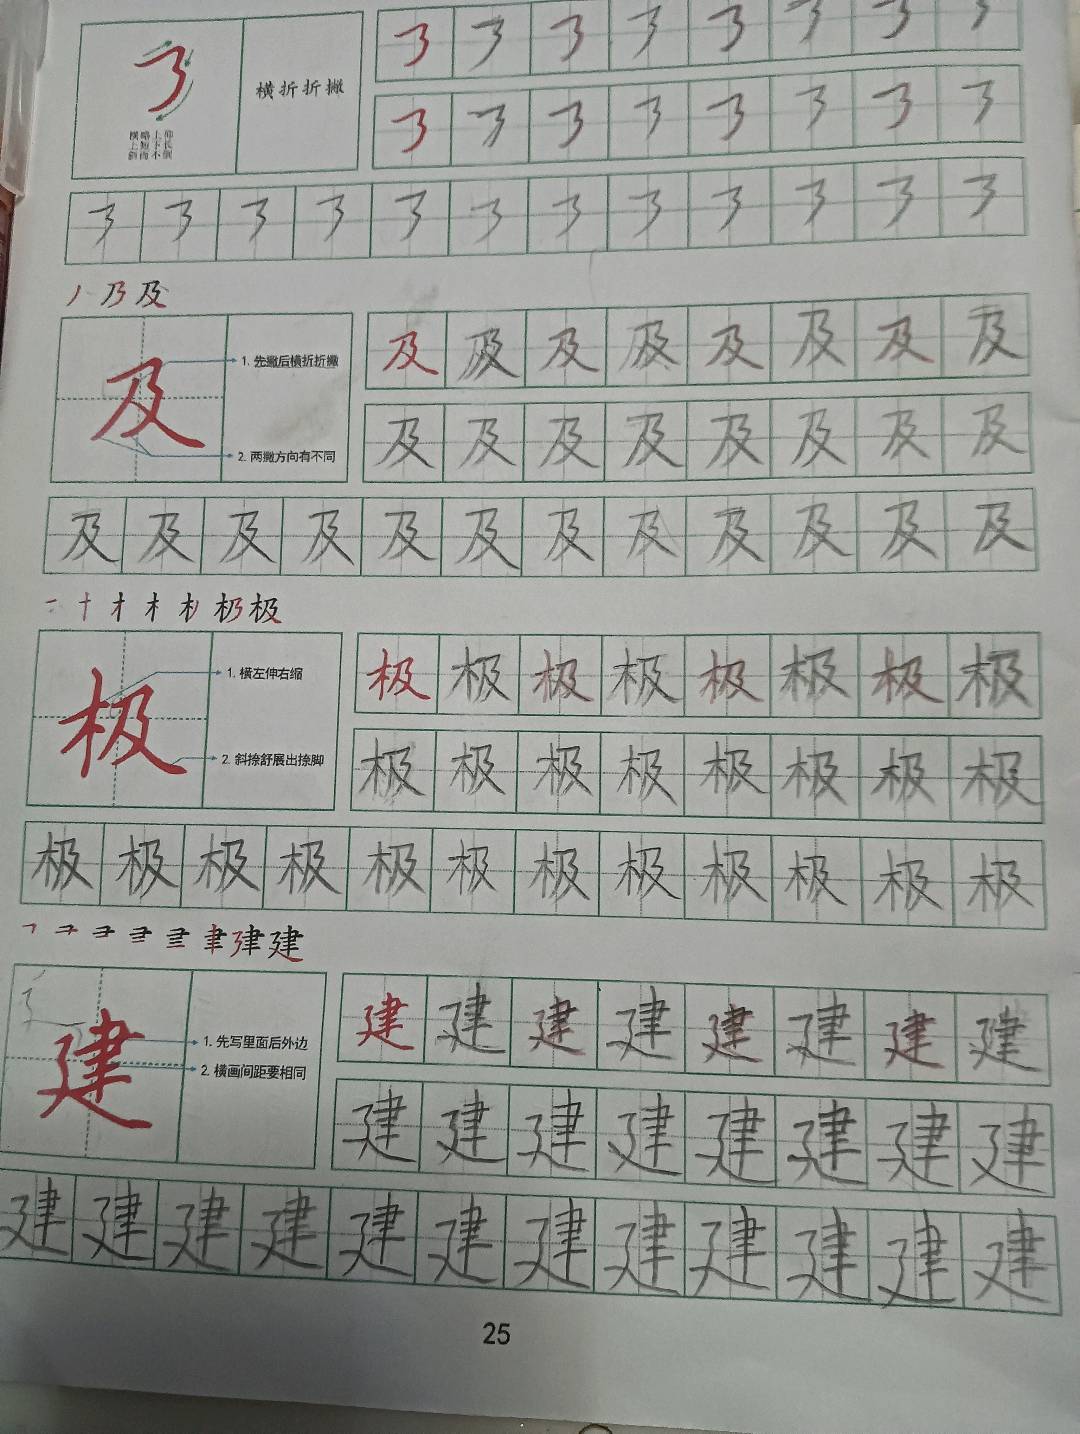 ㇋ ㇋ ㇋ ㇋ ㇋ ㇋ ㇋ ㇋ ㇋
横折折撇
横略上仰
上短下长
斜而不倒
㇋ ㇋ ㇋ ㇋ ㇋ ㇋ ㇋ ㇋
㇋ ㇋ ㇋ ㇋ ㇋ ㇋ ㇋ ㇋ ㇋ ㇋ ㇋ ㇋
丿 乃 及
及
1. 先撇后横折折撇
2. 两撇方向有不同
及 及 及 及 及 及 及 及
及 及 及 及 及 及 及 及
及 及 及 及 及 及 及 及 及 及 及 及
极
极
1. 横左伸右缩
2. 斜捺舒展出捺脚
极 极 极 极 极 极 极 极
极 极 极 极 极 极 极 极
极 极 极 极 极 极 极 极 极 极 极 极
建
建
1. 先写里面后外边
2. 横画间距要相同
建 建 建 建 建 建 建 建
建 建 建 建 建 建 建 建
建 建 建 建 建 建 建 建 建 建 建 建
25